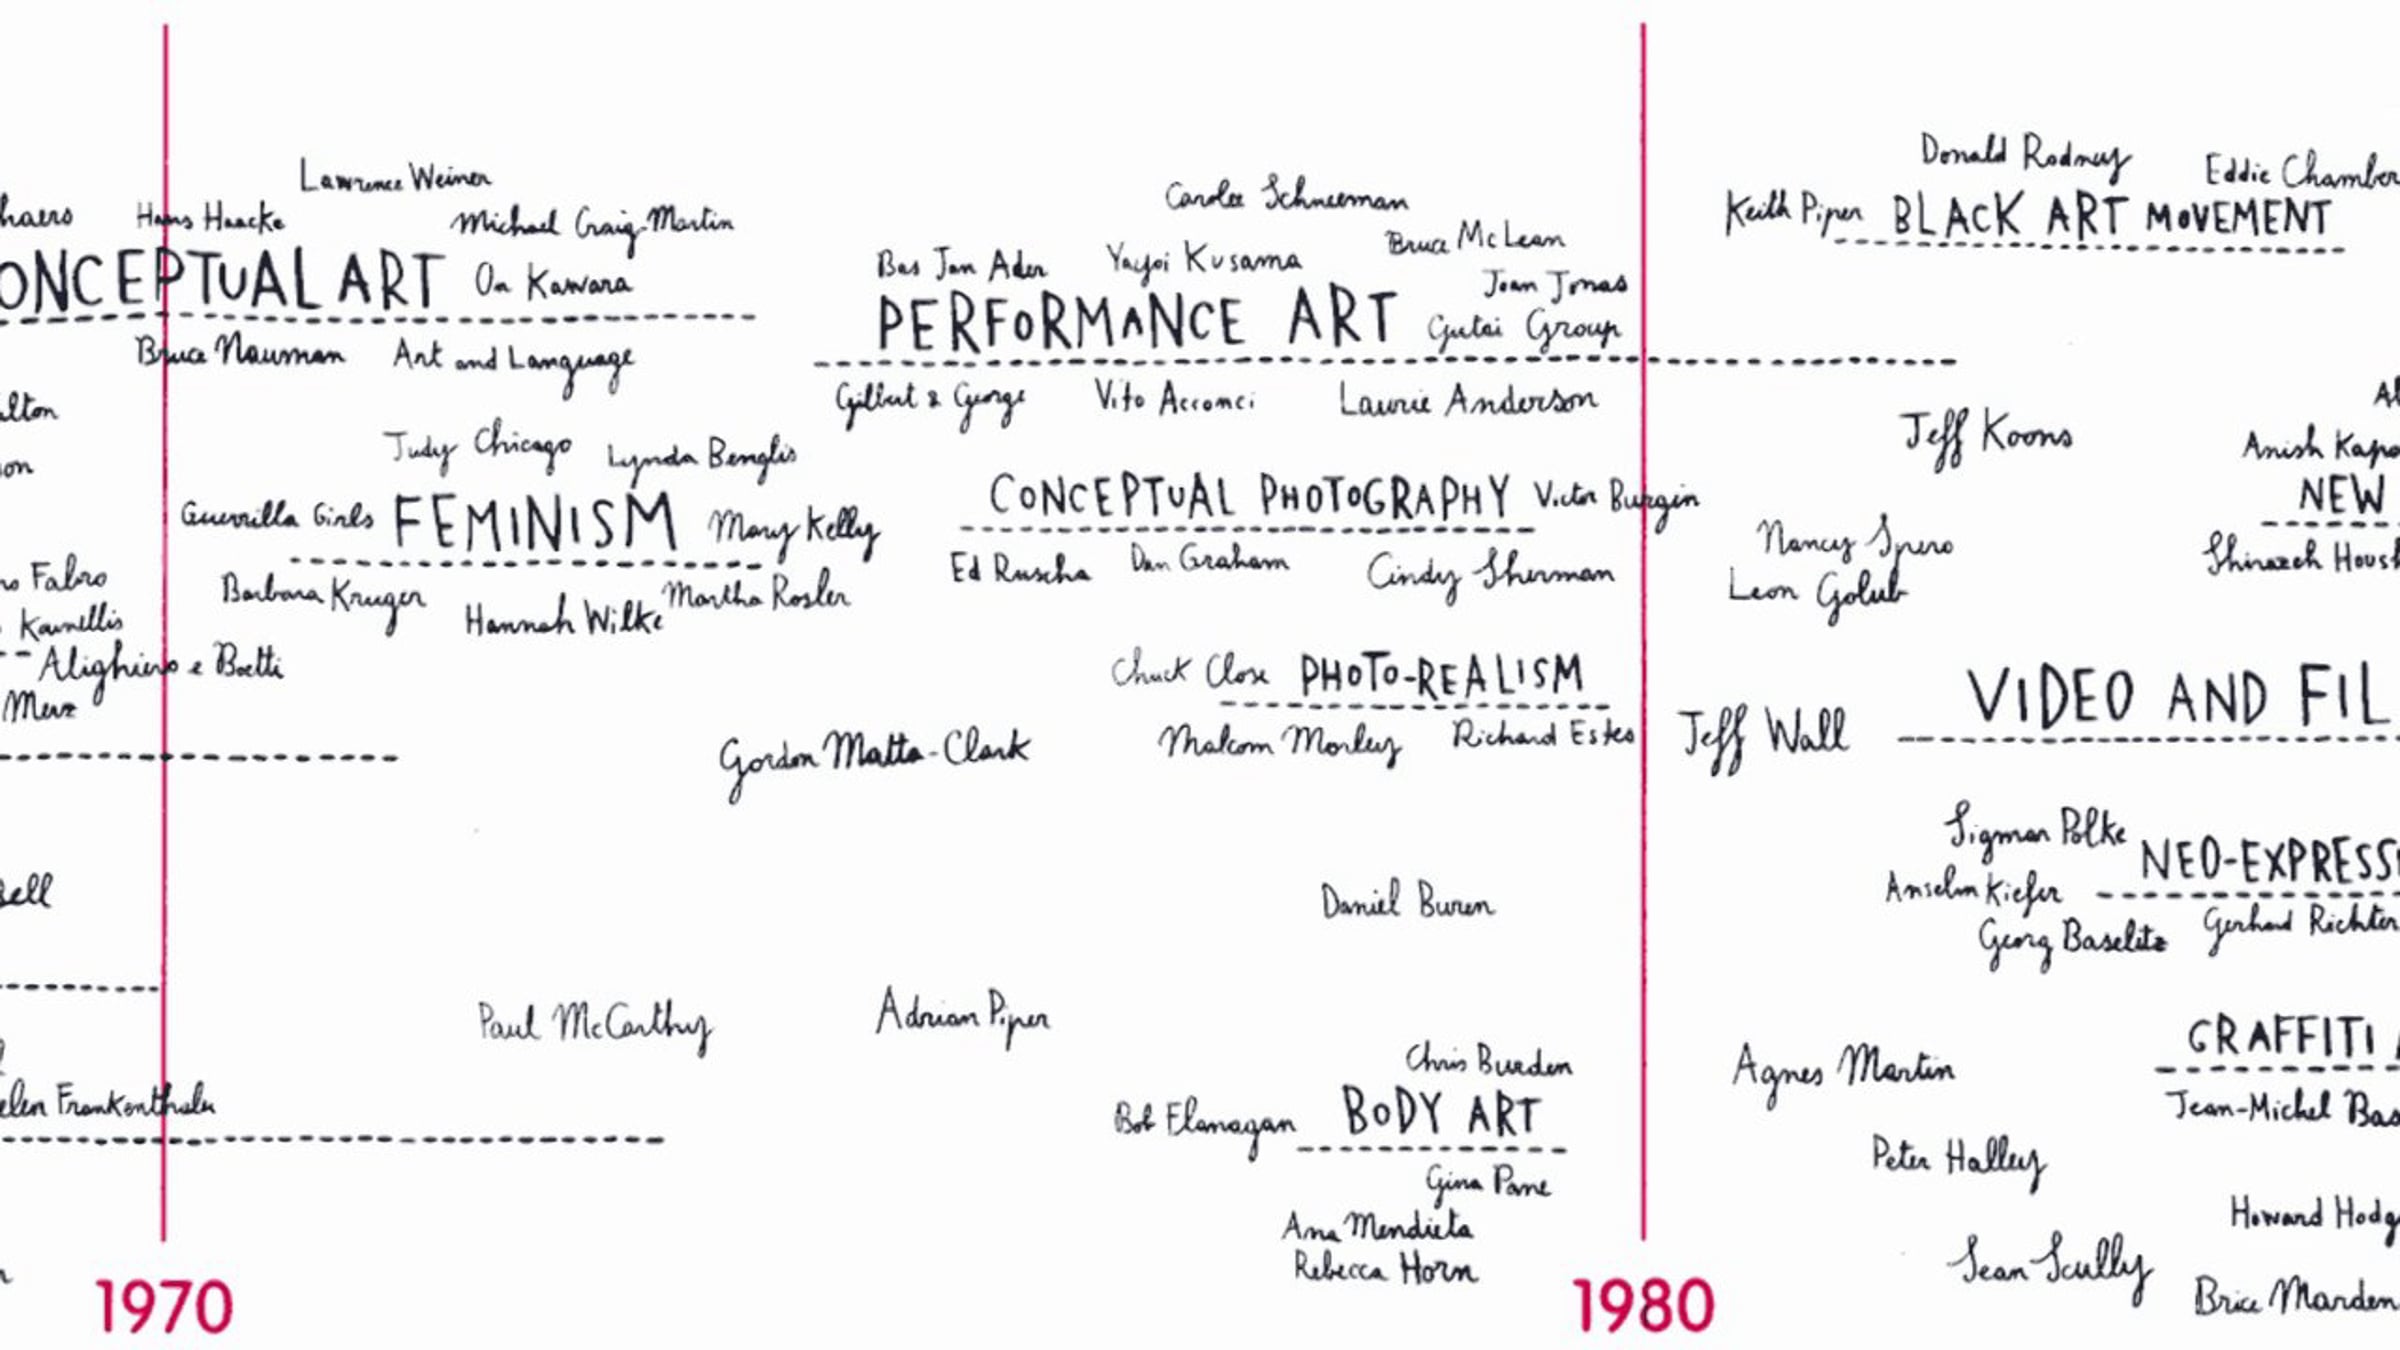 Donald Rodney
Eddie Chamber
Keith Piper BLACK ART MOVEMENT
Lawrence Weiner
haers Hans Haacke Michael Craig-Martin
ONCEPTUAL ART On Kawara
Bruce Nauman Art and Language
Carolee Schneeman
Bruce McLean
Bas Jan Ader Yayoi Kusama
Joan Jonas
PERFORMANCE ART Gutai Group
Gilbert & George Vito Acconci Laurie Anderson
lton
on
Judy Chicago Lynda Benglis
Guerrilla Girls FEMINISM Mary Kelly
Barbara Kruger Hannah Wilke Martha Rosler
CONCEPTUAL PHOTOGRAPHY Victor Burgin
Ed Ruscha Dan Graham Cindy Sherman
Jeff Koons
Al
Anish Kapo
NEW
Shirazeh Housh
Nancy Spero
Leon Golub
o Fabro
Kounellis
Alighiero e Boetti
Merz
Chuck Close PHOTO-REALISM
Malcom Morley Richard Estes
Gordon Matta-Clark
Jeff Wall VIDEO AND FIL
Sigmar Polke
NEO-EXPRESS
Anselm Kiefer
Georg Baselitz Gerhard Richter
ell
Daniel Buren
Paul McCarthy Adrian Piper
elen Frankenthaler
Chris Burden
Bob Flanagan BODY ART
Gina Pane
Ana Mendieta
Rebecca Horn
Agnes Martin
GRAFFITI
Jean-Michel Bas
Peter Halley
Howard Hodg
Sean Scully
Brice Marden
1970 1980